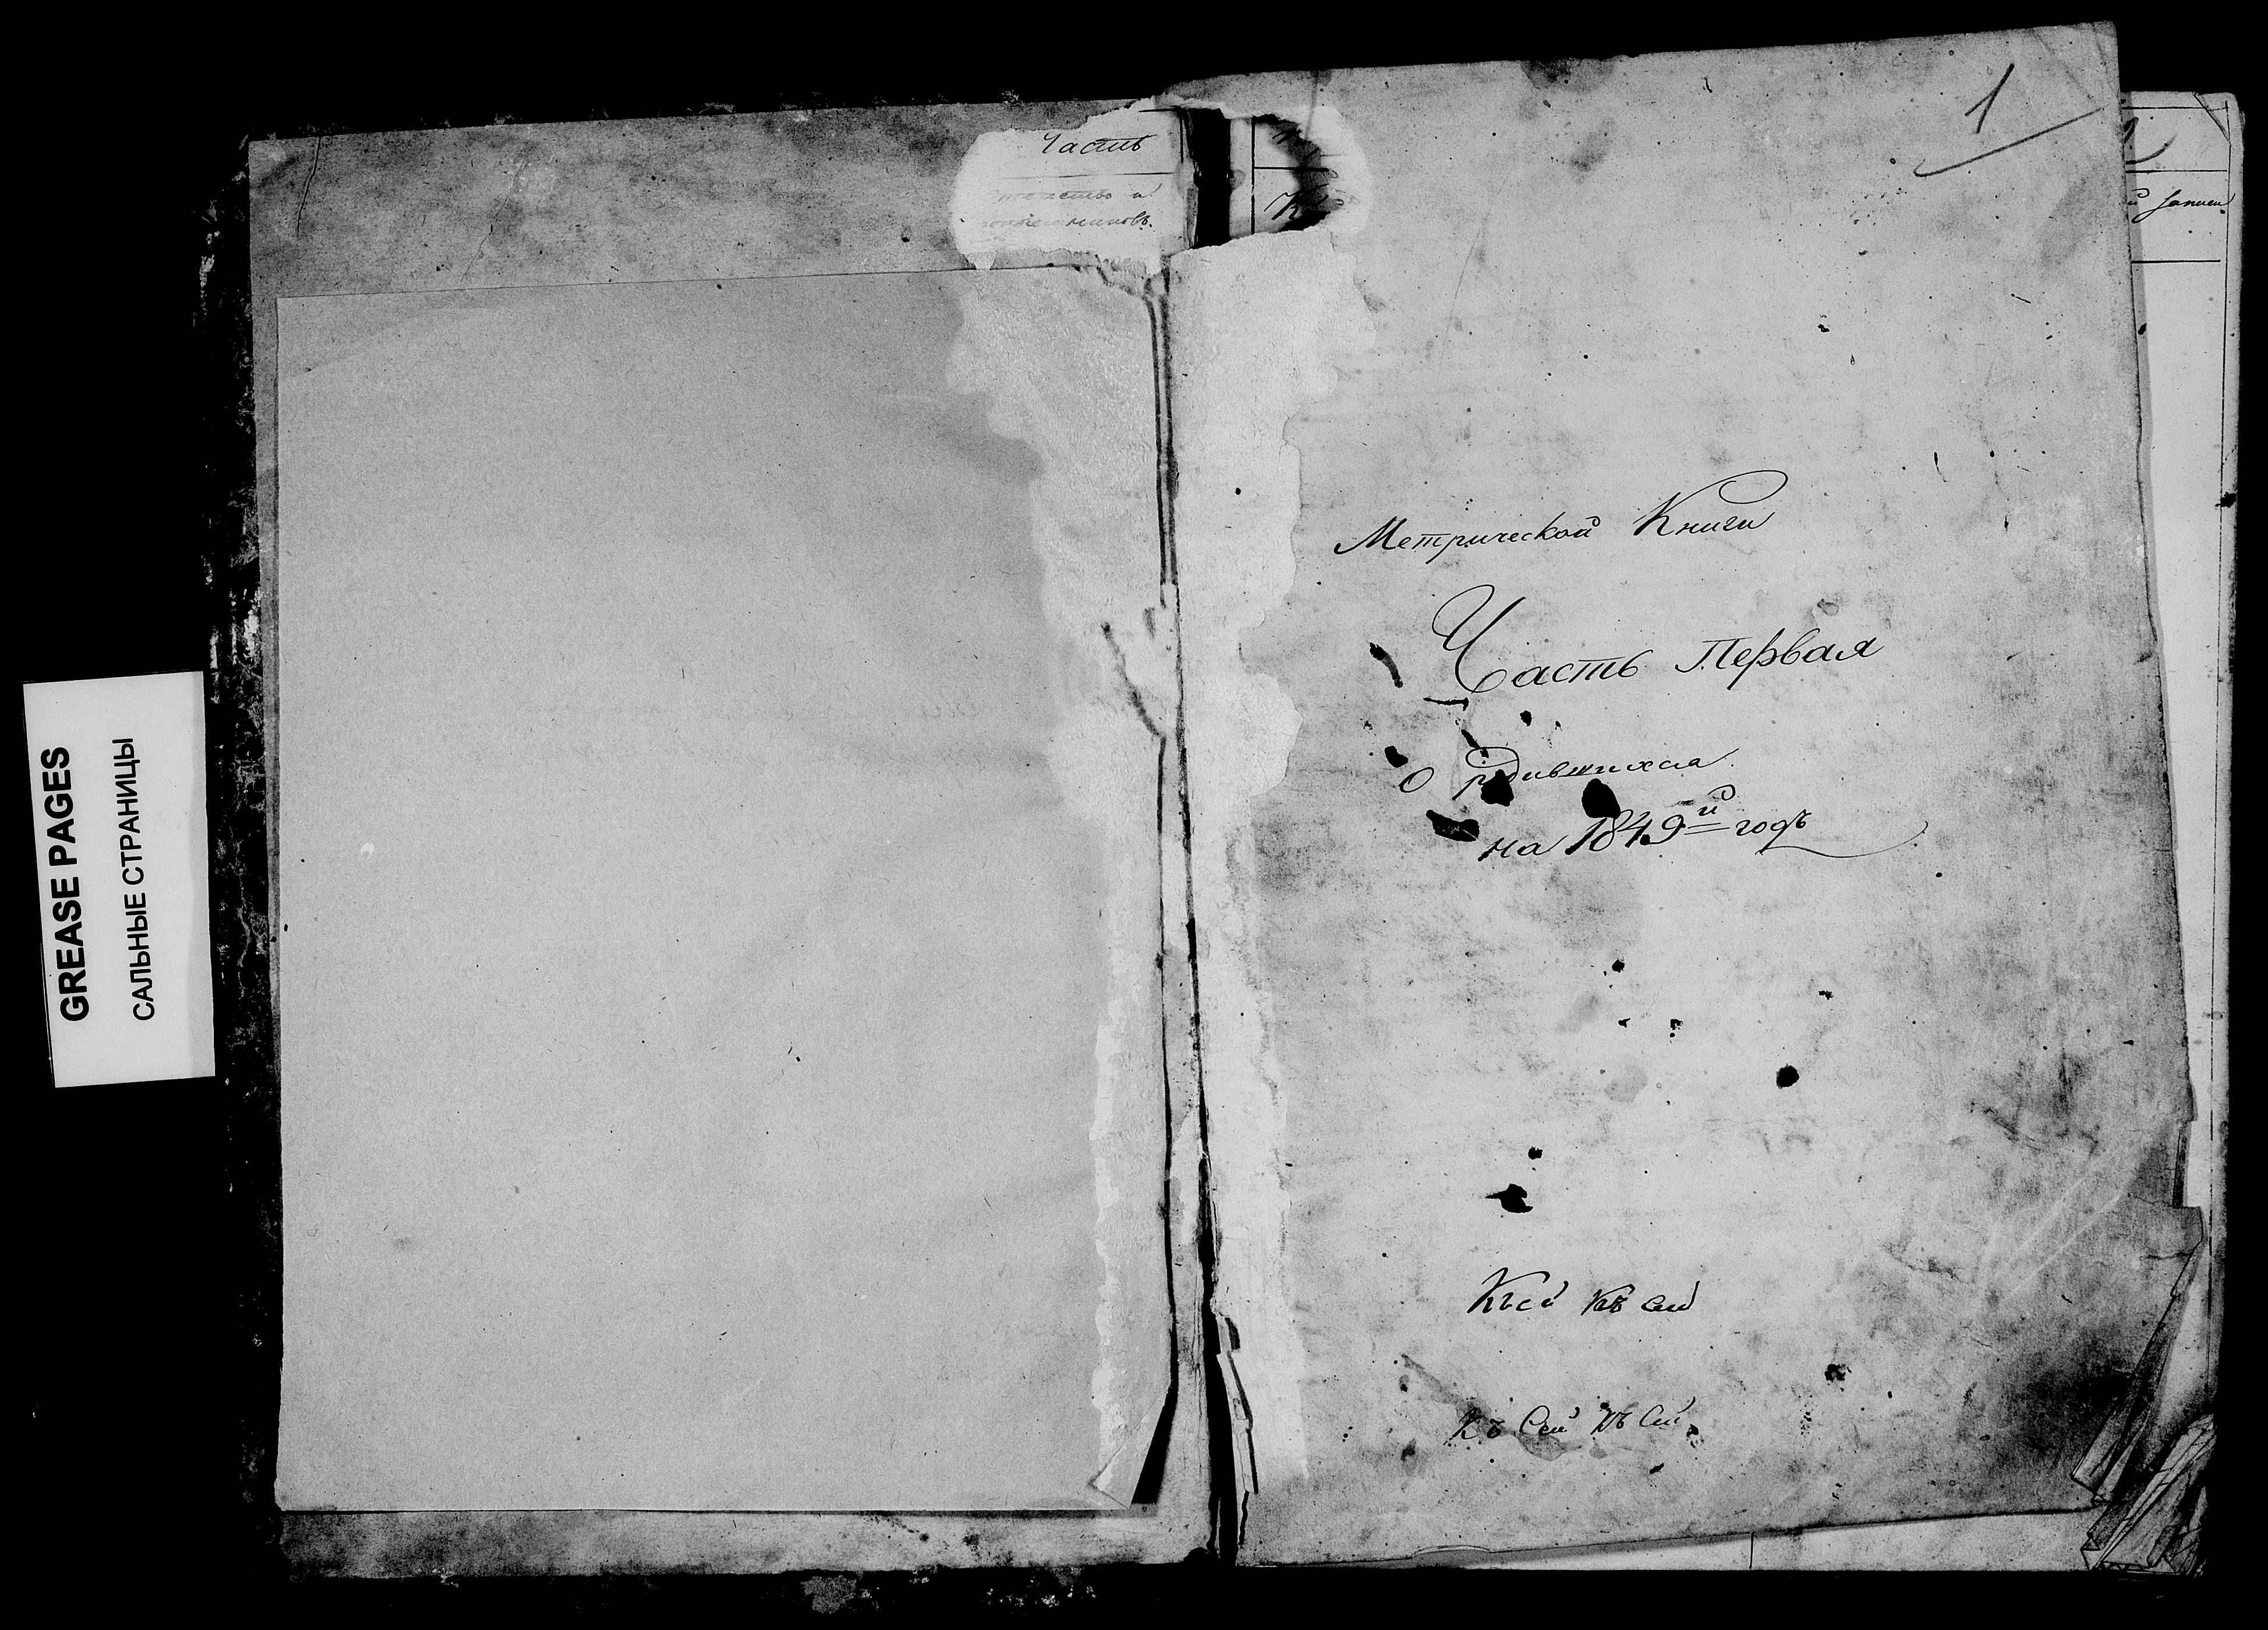 GREASE PAGES
САЛЬНЫЕ СТРАНИЦЫ
Часть
и
1
Метрической Книги
Часть Первая
о родившихся
на 1849й годъ
Къ сей къ сей
Къ Сей къ Сей